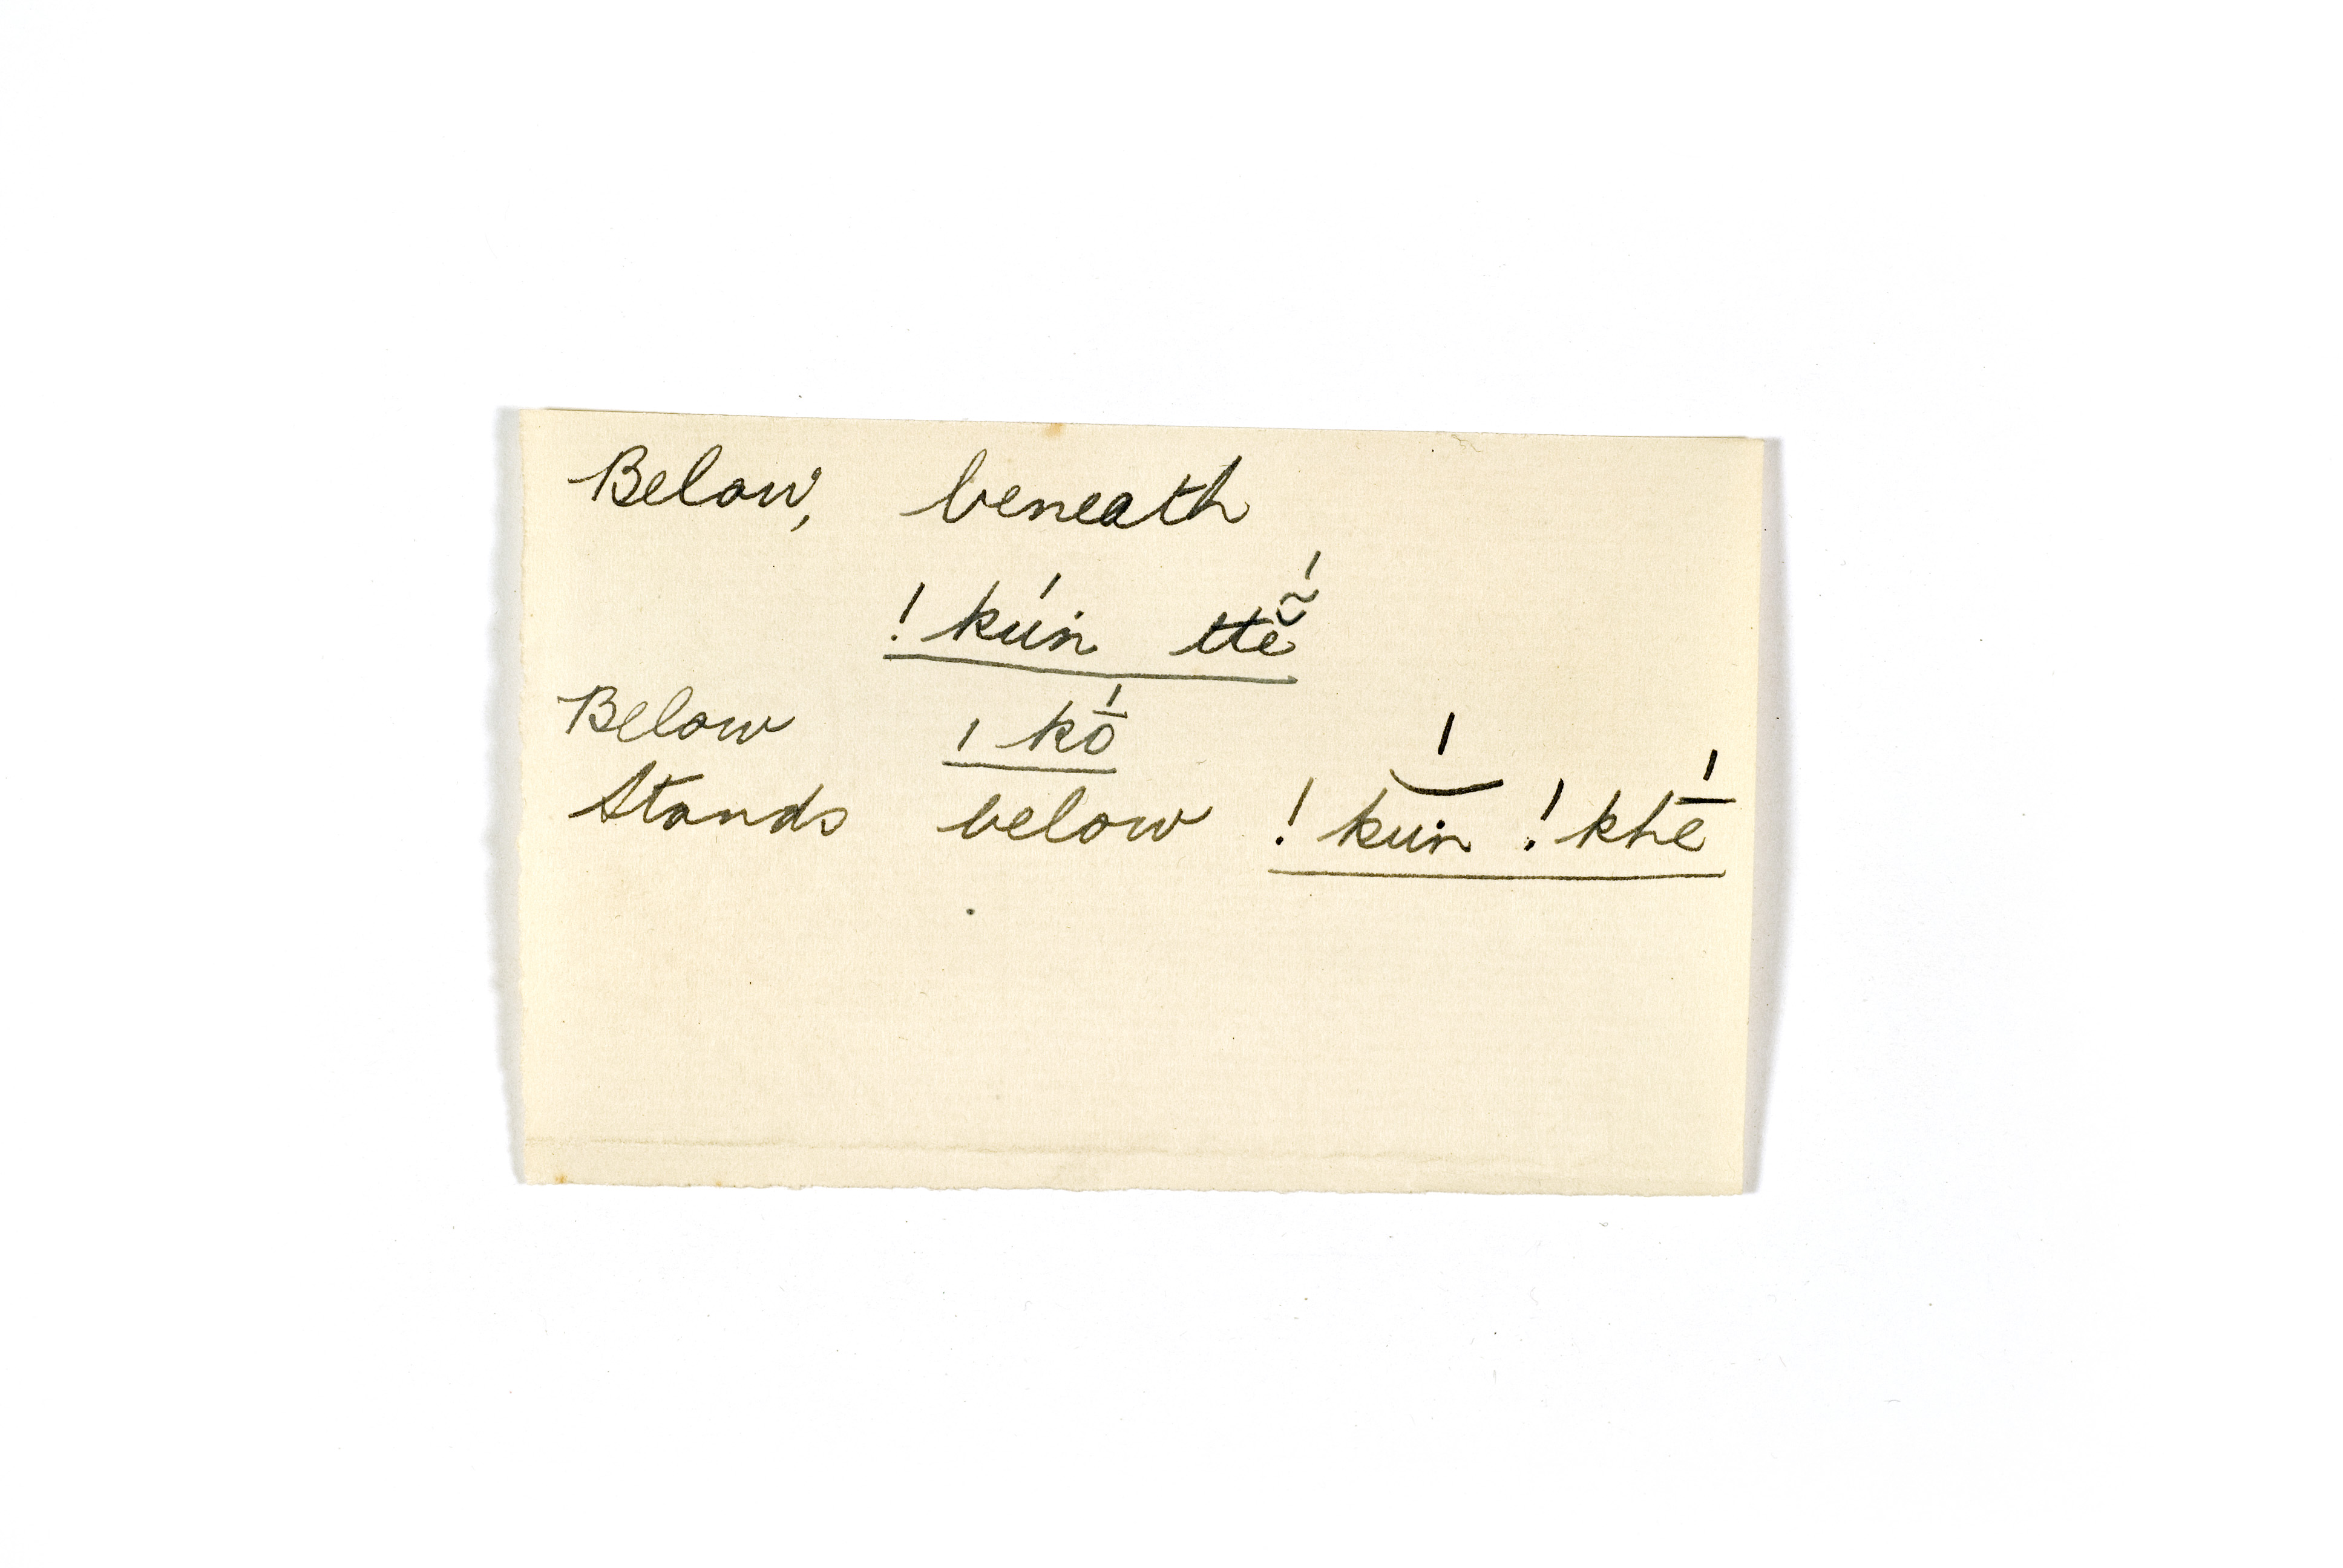 Below, beneath
! kúṅ ttẽ̆́
Below ı kṓ
Stands below ! kŭ́ṅ ! khḗ